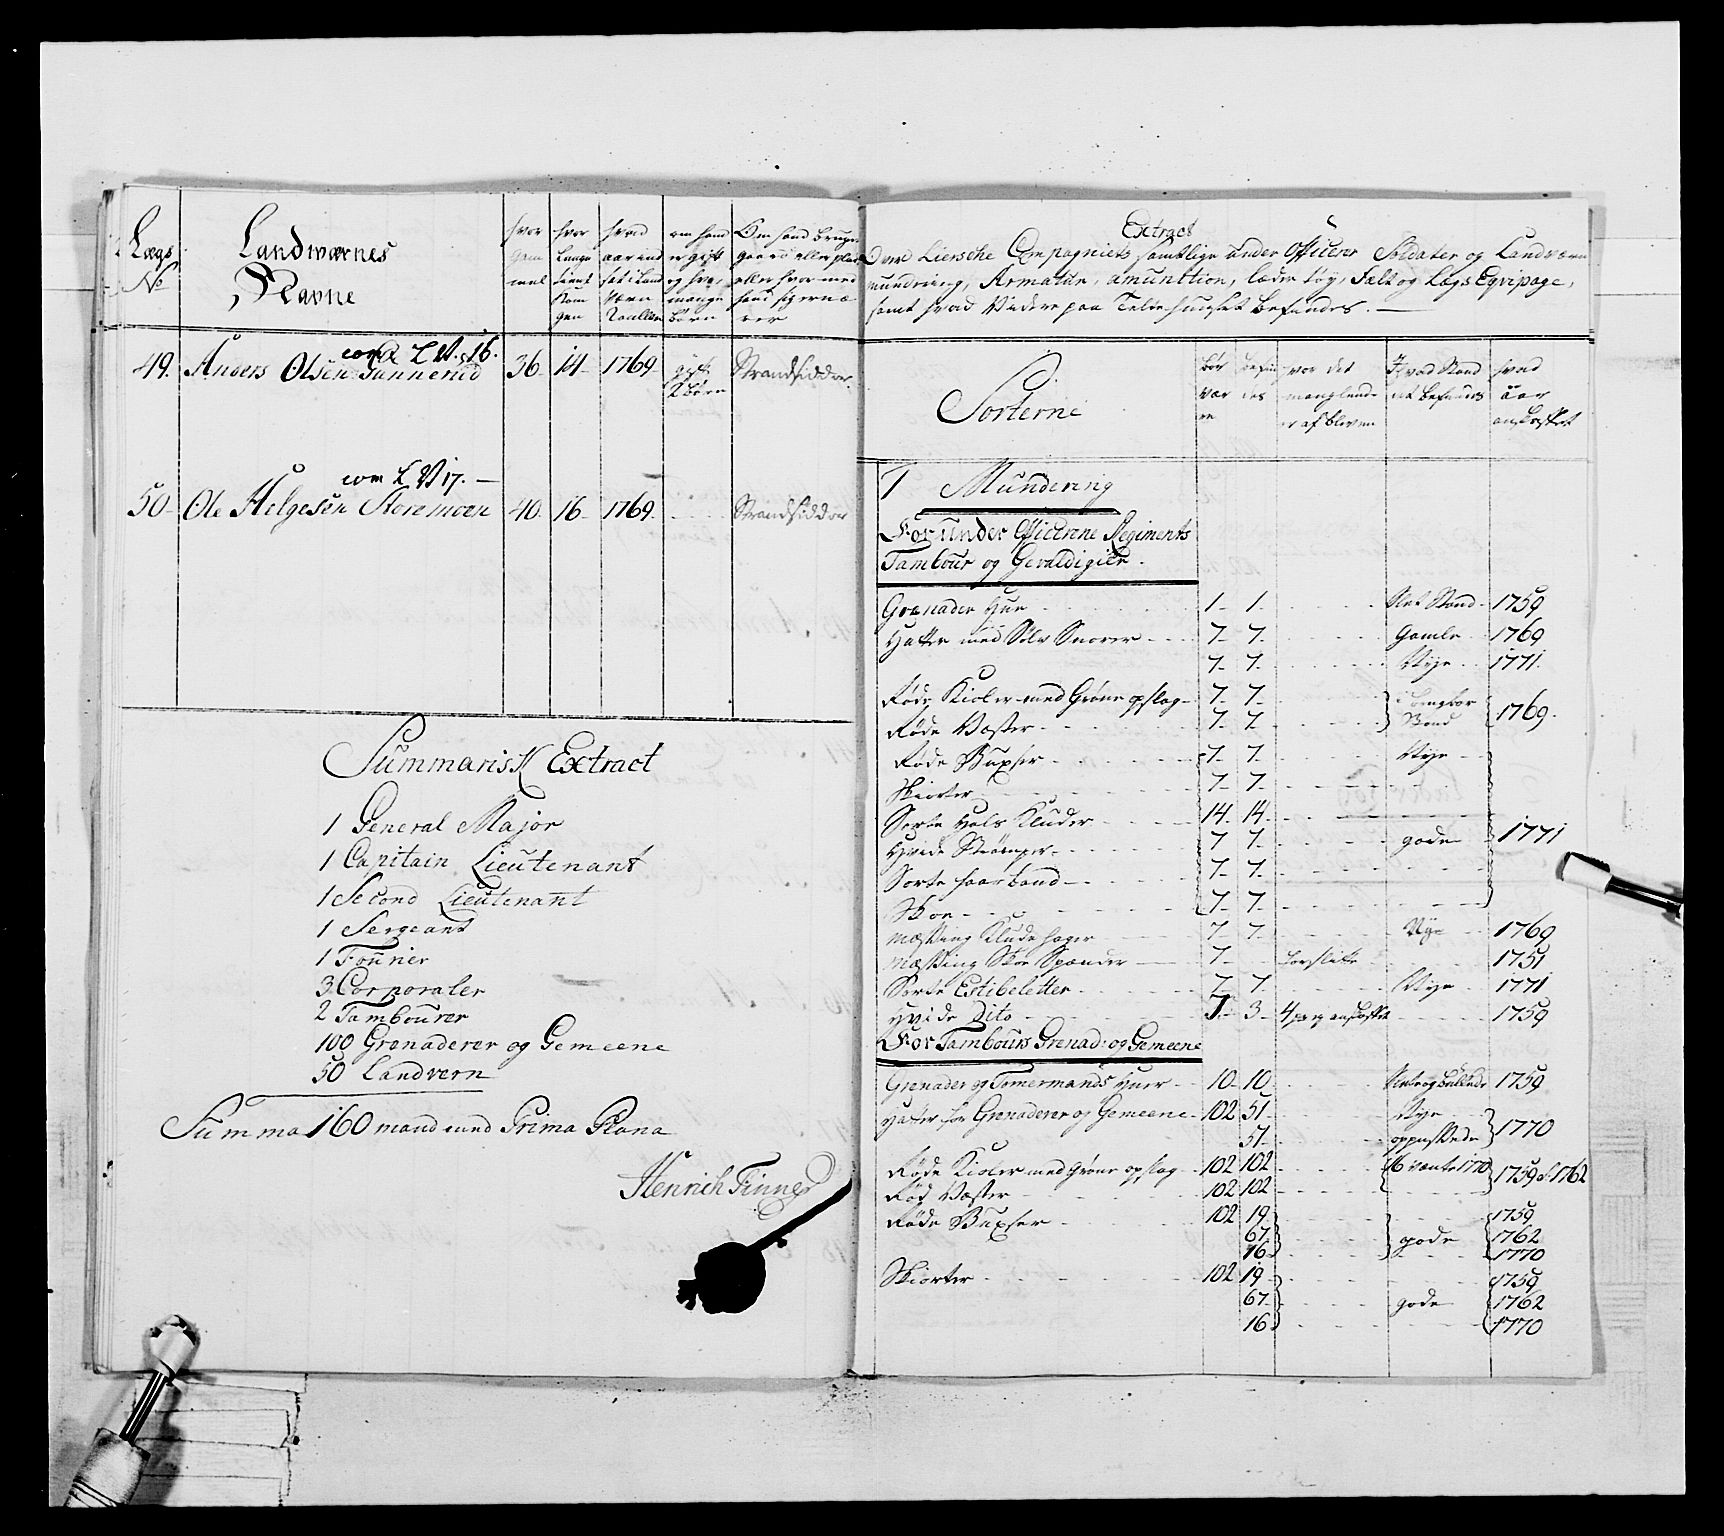 Lægs
No
Landwærnes
Navne
hvor
gam
mel
hvor
Længe
tient
Kon
gen
hvad
aar ind
sat i Land
Værn
Roullen
om hand
er gift
og hvor
mange
børn
Om hand bruger
gaard eller plads
eller hvor med
hand sig ernæ
rer
49. Anders Olsen Gunnerud 36 14 1769 gift Strandsidder
com L V. 16.
2 børn
com L V 17.
50 Ole Helgesen Storemoen 40 16 1769 Strandsidder
Summarisk Extract
1 General Major
1 Capitain Lieutenant
1 Second Lieutenant
1 Sergeant
1 Fourier
3 Corporaler
2 Tambourer
100 Grenaderer og Gemeene
50 Landvern
Summa 160 mand med Prima Plana
Henrich Finne
Extract
Over Liersche Compagniets samtlige under Officerer Soldater og Landværn
mundering, Armatur, amunition, læder tøy, Felt og Lægs Eqvipage,
samt hvad Videre paa Telthuuset befindes.
Sorterne
bør
vær
re
befin
des
hvor det
manglende
er af bleven
I hvad Stand
det befindes
hvad
aar
anskaffet
1 Mundering
For under Officerene Regiments
Tambour og Gevaldigier.
Grenader Hue 1 1 Slet Stand 1759
Hatte med Sølv Snorer 7 7 Gamle 1769
7 7 Nye 1771
Røde Kioler med Grøne opslag 7 7 i brugbar
Røde Væster 7 7 Stand 1769.
Røde Buxser 7 7 Nye
Skiorter 7 7
Sorte Hals Kluder 14 14
Hvide Strømper 7 7 gode 1771
Sorte haarbaand 7 7
Skoe 7 7
Mæssing Klude hager 7 7 Nye 1769
Mæssing Skoe Spænder 7 forslitte 1751
Sorte Estibeletter 7 7 Nye 1771
Hvide Dito 7 3 4 par anskaffet 1759
For Tambours Grenad: og Gemeene
Grenader og Tømermands Huer 10 10 1759
Hatter for Grenaderer og Gemeene 102 51 Nye
51 oppudsede 1770
Røde Kioler med Grøne opslag 102 102 16 1770 1759 &: 1762
Rød Væster 102 102
Røde Buxser 102 19 1759
67 gode 1762
16 1770
Skiorter 102 19 1759
67 gode 1762
16 1770